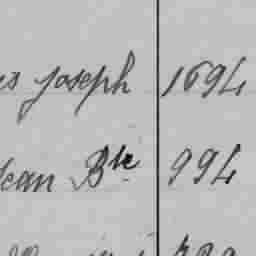 Joseph 1694
Jean Bte 994